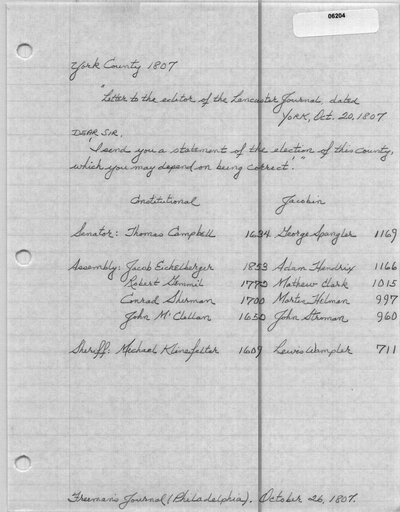 06204
York County 1807
"Letter to the editor of the Lancaster Journal, dated
YORK, Oct. 20, 1807
DEAR SIR,
"I send you a statement of the election of this county,
which you may depend on being correct.""
Constitutional Jacobin
Senator: Thomas Campbell 1634 George Spangler 1169
Assembly: Jacob Eichelberger 1853 Adam Hendrix 1166
Robert Gemmil 1770 Mathew Clark 1015
Conrad Sherman 1700 Martin Heiman 997
John McClellan 1650 John Stroman 960
Sheriff: Michael Klinefelter 1609 Lewis Wampler 711
Freeman's Journal (Philadelphia). October 26, 1807.